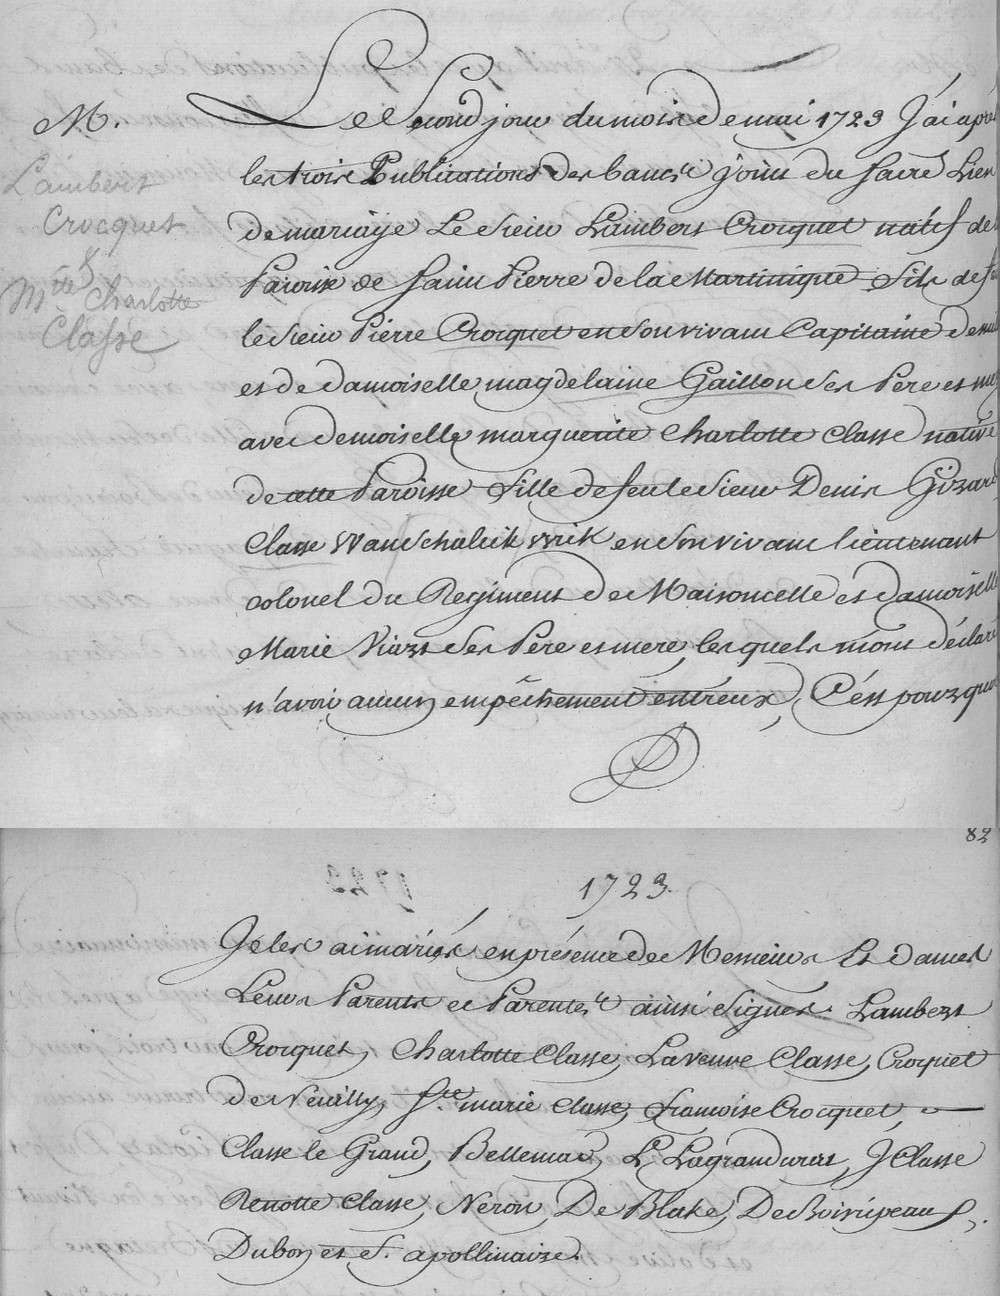 M.
Lambert
Crocquet
&
Mte Charlotte
Classe
Le second jour du mois de mai 1723 J'ai apres
les trois Publications des bancs joins du sacré Lien
de mariage Le sieur Lambert Crocquet natif de
Paroise de saint Pierre de la Martinique fils de
le sieur Pierre Crocquet en son vivant Capitaine de
et de damoiselle magdelaine Gaillon ses Pere et
avec demoiselle marguerite charlotte Classe native
de cette Paroisse fille de feu le sieur Denis
Classe Wan Schalckwik en son vivant lieutenant
colonel du Regiment de Maisoncelle et damoiselle
Marie ses Pere et mere lesquels m'ont déclaré
n'avoir aucun empêchement entreux, C'est pourquoi
82
1723
Je les ai mariés en présence de Messieurs Et dames
Leurs Parents et Parentes ainsi signés. Lambert
Crocquet, Charlotte Classe, La veuve Classe, Crocquet
de Neuilly, Ste marie Classe, francoise Crocquet,
Classe le Grand, Bellemar, L. Lagranducas, J Classe
Renotte Classe, Neron, De Blake, De Boiripeau,
Dubon et f. apollinaire.